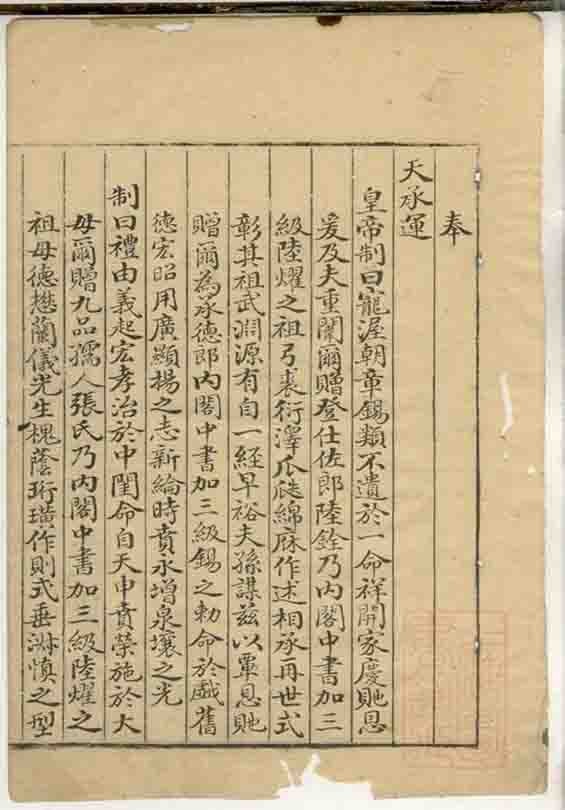 奉
天承運
皇帝制曰寵渥朝章錫類不遺於一命祥開家慶貤恩
爰及夫重闈爾贈登仕佐郎陸銓乃內閣中書加三
級陸燿之祖弓裘衍澤瓜瓞綿庥作述相承再世式
彰其祖武淵源有自一經早裕夫孫謀茲以覃恩貤
贈爾為承德郎內閣中書加三級錫之勅命於戲舊
德宏昭用廣顯揚之志新綸時賁永增泉壤之光
制曰禮由義起宏孝治於中閨命自天申賁榮施於大
母爾贈九品孺人張氏乃內閣中書加三級陸燿之
祖母德懋蘭儀光生槐蔭珩璜作則式垂淑慎之型